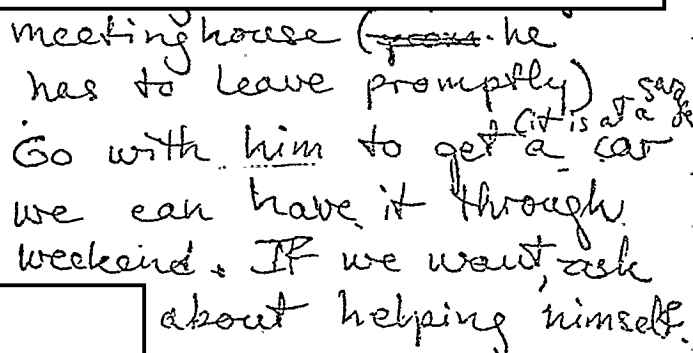 meetinghouse (he
has to leave promptly)
(it is at a
Go with him to get a car
we can have it through
weekend. If we want, ask
about helping himself.